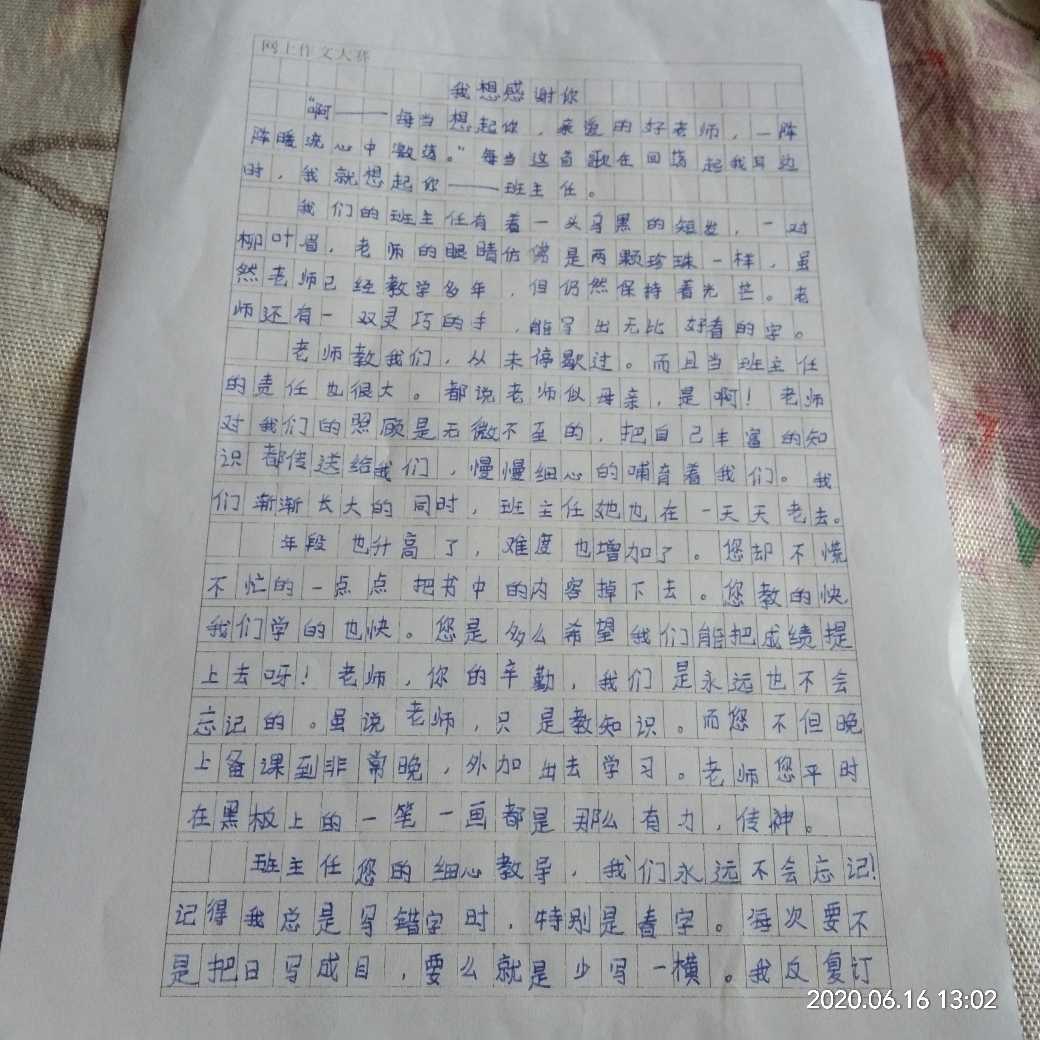 网上作文大赛
我想感谢你
“啊——每当想起你，亲爱的好老师，一阵
阵暖流心中激荡。”每当这首歌在回荡起我耳边
时，我就想起你——班主任。
我们的班主任有着一头乌黑的短发，一对
柳叶眉，老师的眼睛仿佛是两颗珍珠一样，虽
然老师已经教学多年，但仍然保持着光芒。老
师还有一双灵巧的手，能写出无比好看的字。
老师教我们，从未停歇过。而且当班主任
的责任也很大。都说老师似母亲，是啊！老师
对我们的照顾是无微不至的，把自己丰富的知
识都传送给我们，慢慢细心的哺育着我们。我
们渐渐长大的同时，班主任她也在一天天老去。
年段也升高了，难度也增加了。您却不慌
不忙的一点点把书中的内容掉下去。您教的快
我们学的也快。您是多么希望我们能把成绩提
上去呀！老师，你的辛勤，我们是永远也不会
忘记的。虽说老师，只是教知识。而您不但晚
上备课到非常晚，外加出去学习。老师您平时
在黑板上的一笔一画都是那么有力，传神。
班主任您的细心教导，我们永远不会忘记！
记得我总是写错字时，特别是春字。每次要不
是把日写成目，要么就是少写一横。我反复订
2020.06.16 13:02